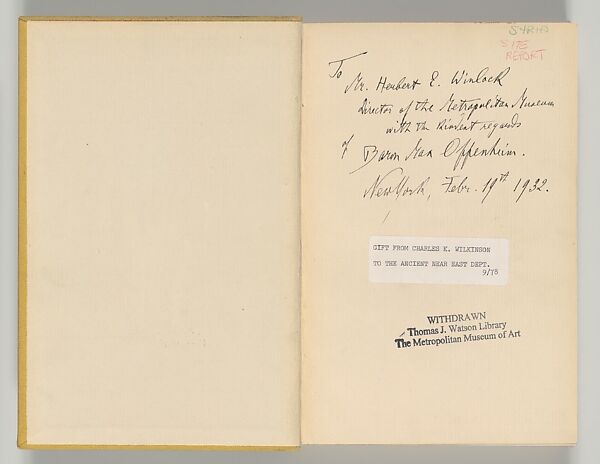 SYRIA
SITE
REPORT
To
Mr. Herbert E. Winlock
Director of the Metropolitan Museum
with the kindest regards
of
Baron Max Oppenheim.
New York, Febr. 19th 1932.
GIFT FROM CHARLES K. WILKINSON
TO THE ANCIENT NEAR EAST DEPT.
9/78
WITHDRAWN
Thomas J. Watson Library
The Metropolitan Museum of Art